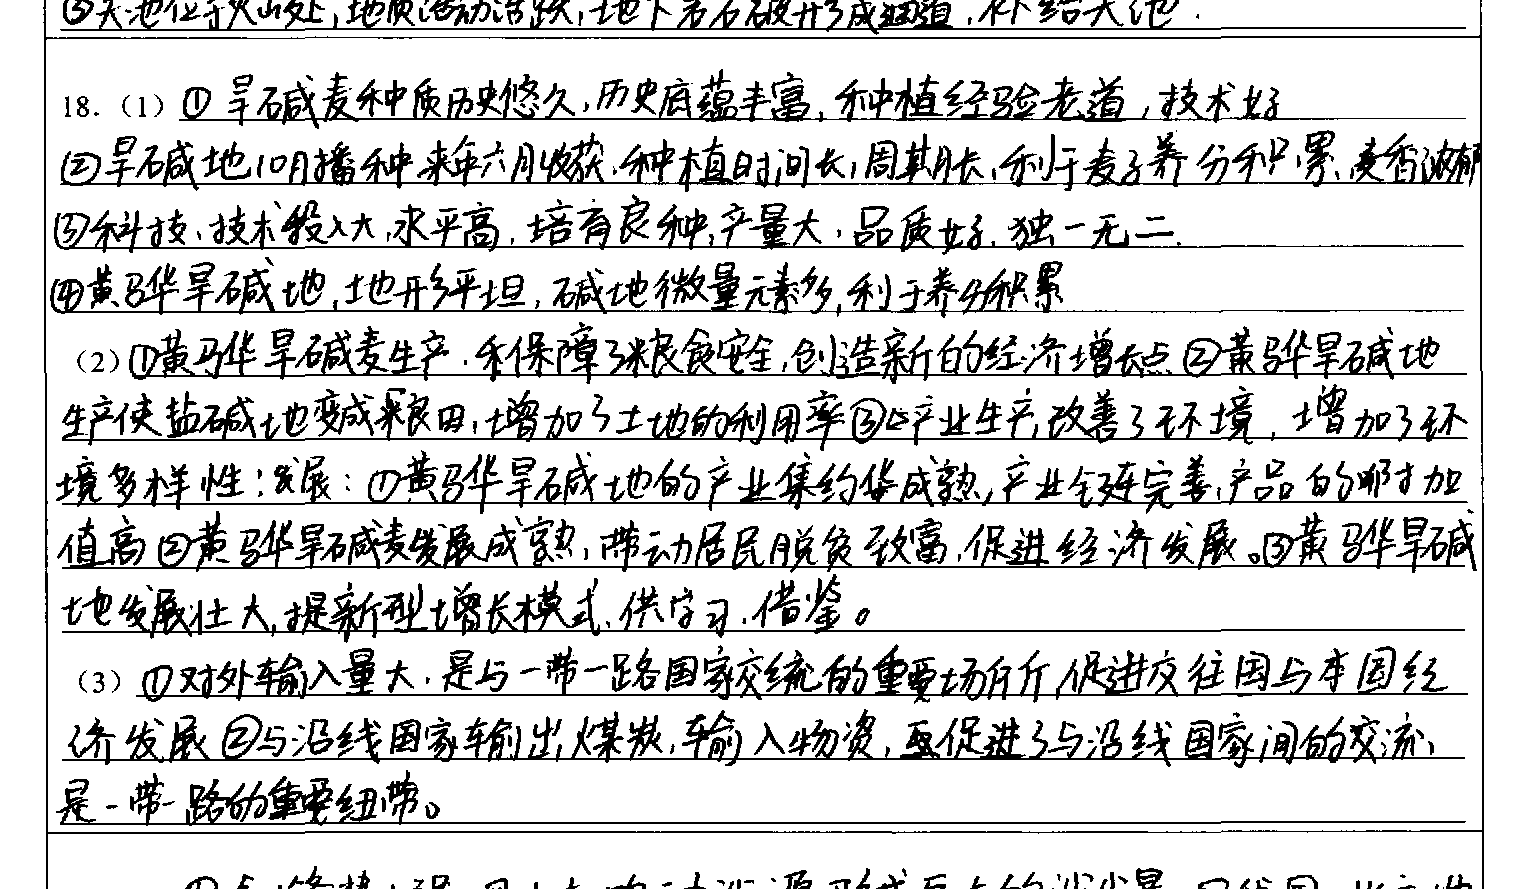 ③天池位于火山处,地质活动活跃,地下岩石破开形成通道,补给天池.
18.（1）①旱碱麦种质历史悠久,历史底蕴丰富,种植经验老道,技术好
②旱碱地10月播种来年六月收获,种植时间长,周期长,利于麦子养分积累,麦香浓郁
③科技、技术投入大,水平高,培育良种,产量大,品质好,独一无二.
④黄骅旱碱地,地形平坦,碱地微量元素多,利于养分积累
（2）①黄骅旱碱麦生产,保障了粮食安全,创造新的经济增长点②黄骅旱碱地
生产使盐碱地变成粮田,增加了土地的利用率③产业生产,改善了环境,增加了环
境多样性;发展:①黄骅旱碱地的产业集约华成熟,产业链完善,产品的附加
值高②黄骅旱碱麦发展成熟,带动居民脱贫致富,促进经济发展。③黄骅旱碱
地发展壮大,提新型增长模式,供学习,借鉴。
（3）①对外输入量大,是与一带一路国家交流的重要场所,促进交往国与本国经
济发展②与沿线国家输出煤炭,输入物资,促进了与沿线国家间的交流,
是一带一路的重要纽带。